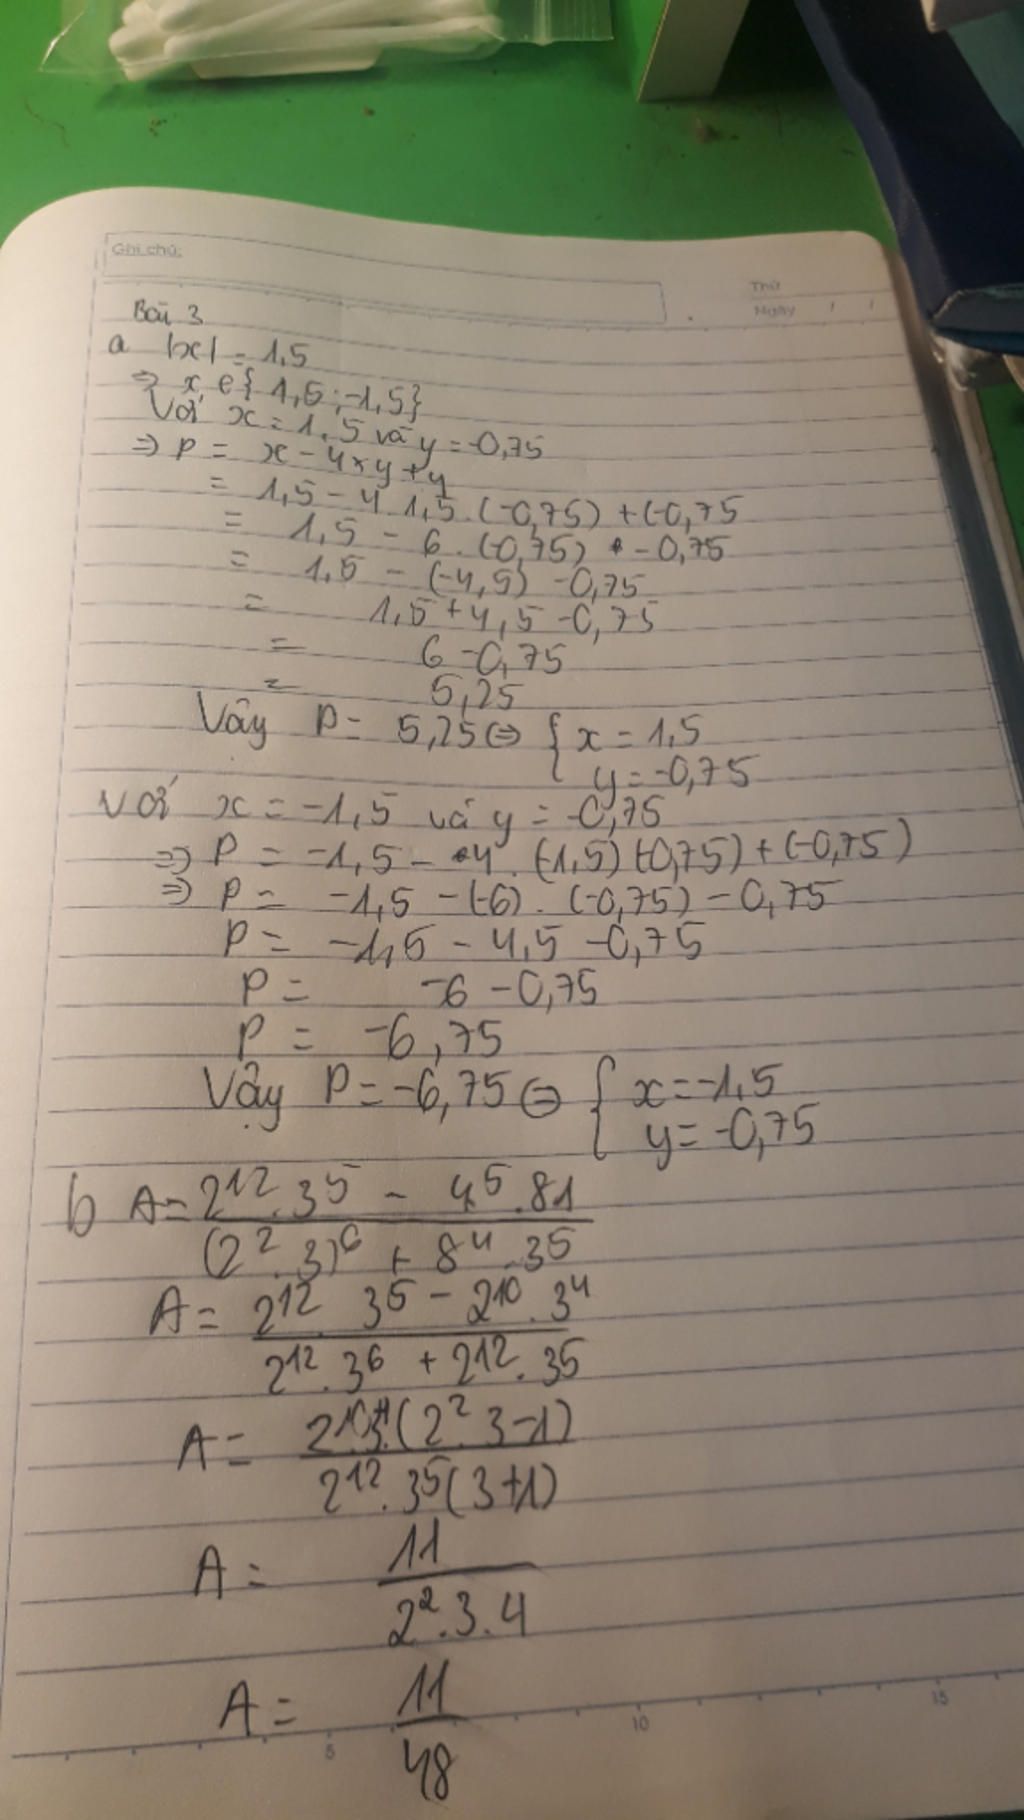 Ghi chú:
Thứ
Ngày / /
Bài 3
a |x| = 1,5
⇒ x ∈ {1,5 ; -1,5}
Với x = 1,5 và y = -0,75
⇒ P = x - 4xy + y
= 1,5 - 4 1,5 . (-0,75) + (-0,75
= 1,5 - 6 . (-0,75) - 0,75
= 1,5 - (-4,5) - 0,75
= 1,5 + 4,5 - 0,75
= 6 - 0,75
= 5,25
Vậy P = 5,25 ⇔ { x = 1,5
y = -0,75
Với x = -1,5 và y = -0,75
⇒ P = -1,5 - 4 . (-1,5) (-0,75) + (-0,75)
⇒ P = -1,5 - (-6) . (-0,75) - 0,75
P = -1,5 - 4,5 - 0,75
P = -6 - 0,75
P = -6,75
Vậy P = -6,75 ⇔ { x = -1,5
y = -0,75
b A = 2¹² . 3⁵ - 4⁵ . 81
(2² . 3)⁶ + 8⁴ . 3⁵
A = 2¹² 3⁵ - 2¹⁰ . 3⁴
2¹² . 3⁶ + 2¹² . 3⁵
A = 2¹⁰ . 3⁴ . (2² . 3 - 1)
2¹² . 3⁵ (3 + 1)
A = 11
2² . 3 . 4
A = 11
48
5 10 15